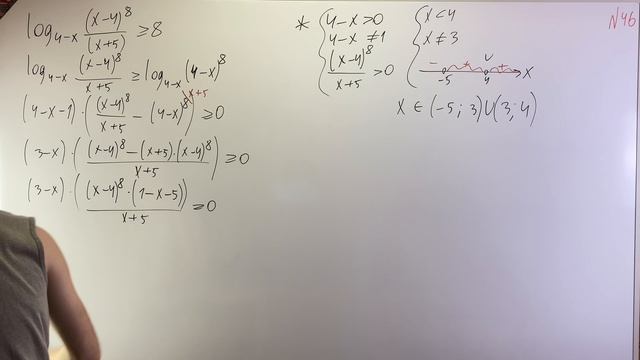 log₄₋ₓ (x-4)⁸/(x+5) ≥ 8
log₄₋ₓ (x-4)⁸/(x+5) ≥ log₄₋ₓ (4-x)⁸
(4-x-1)·((x-4)⁸/(x+5) - (4-x)⁸\x+5) ≥ 0
(3-x)·(((x-4)⁸-(x+5)·(x-4)⁸)/(x+5)) ≥ 0
(3-x)·(((x-4)⁸·(1-x-5))/(x+5)) ≥ 0
* { 4-x>0
4-x≠1
(x-4)⁸/(x+5) > 0
{ x<4
x≠3
- + ∪ +
-5 4 x
x ∈ (-5; 3)∪(3; 4)
№46